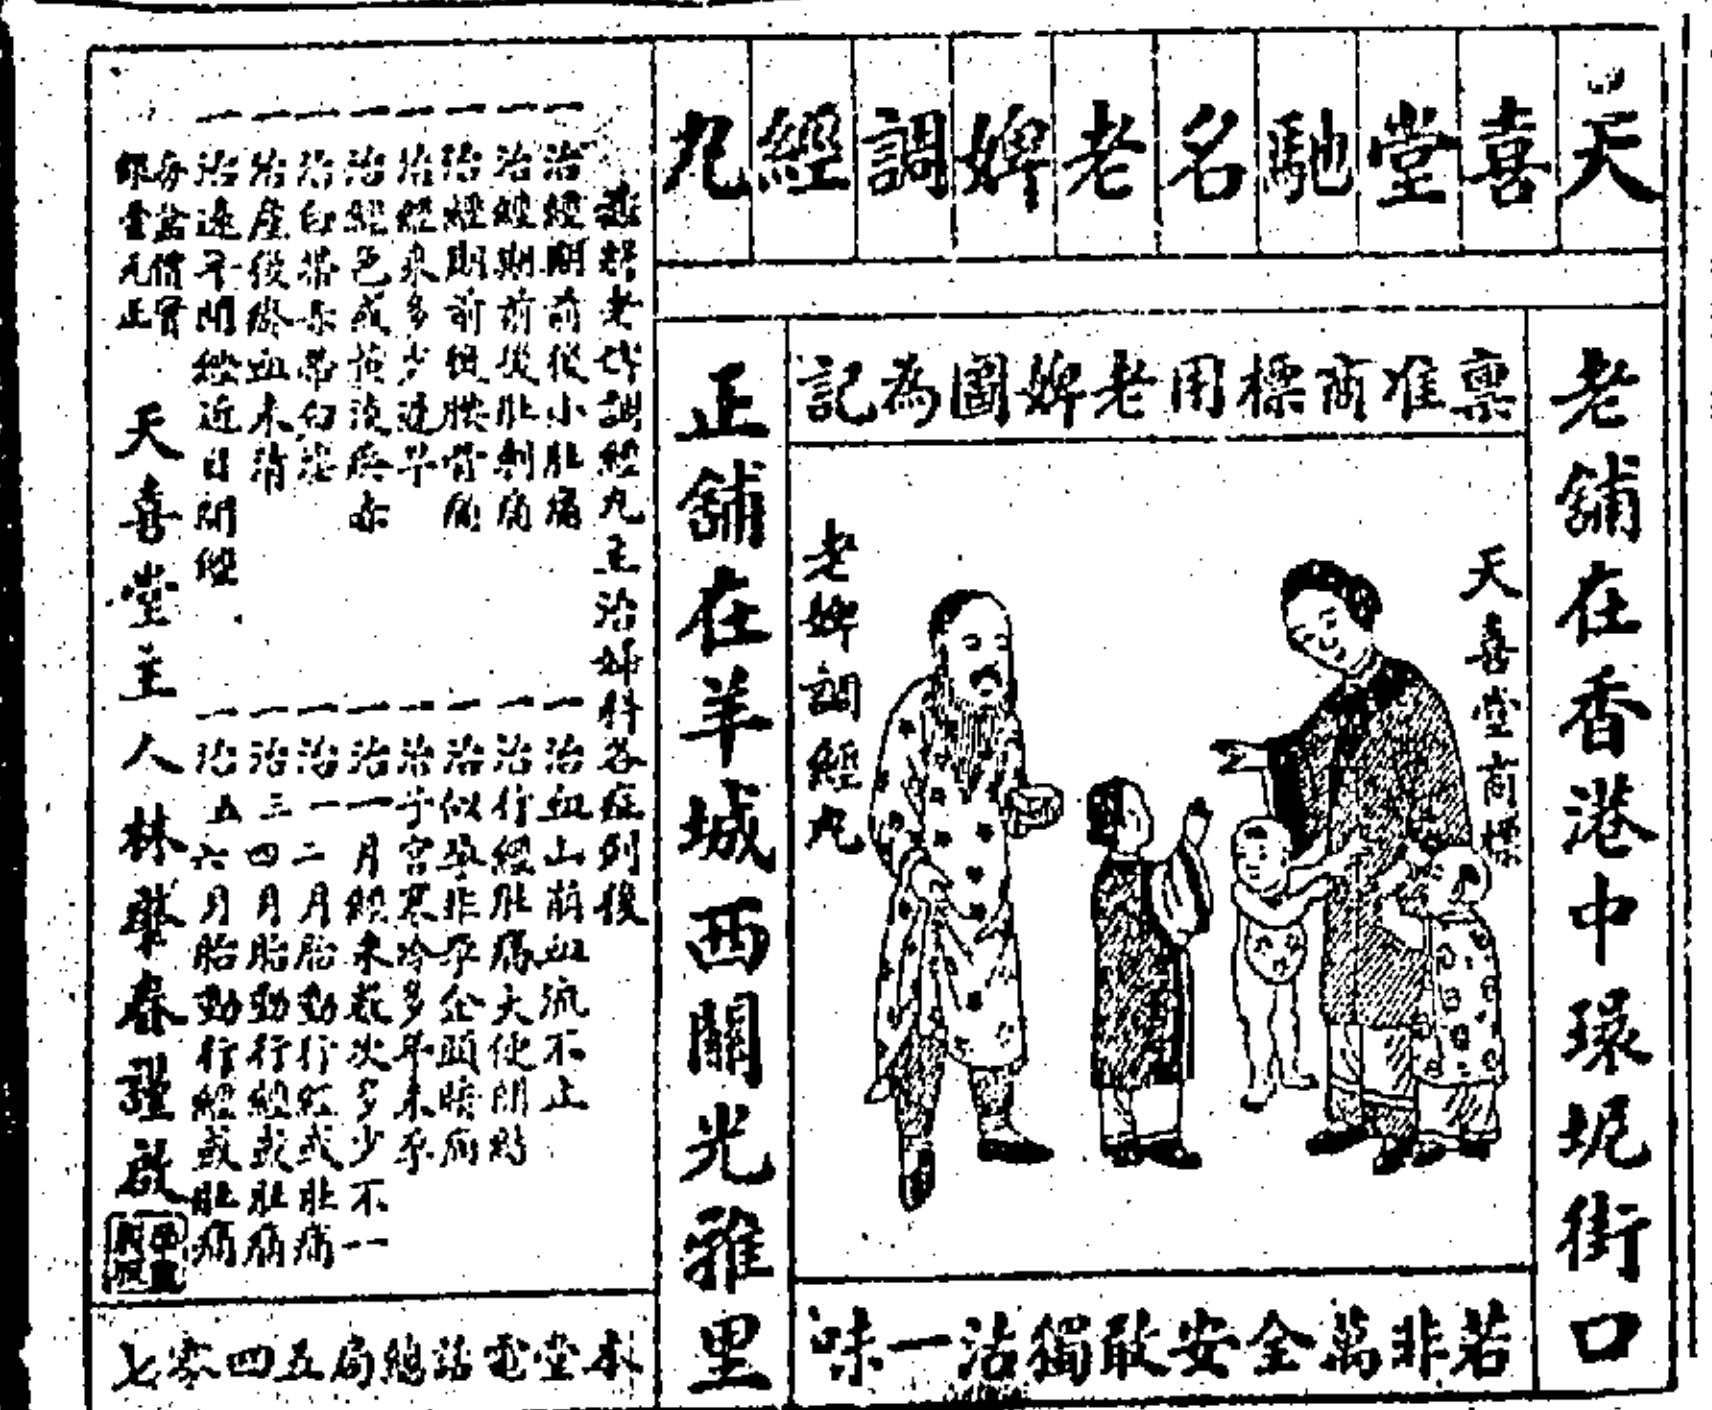 天喜堂馳名老婢調經丸
老舖在香港中環坭街口
稟准商標用老婢圖為記
天喜堂商標
老婢調經丸
若非萬全安敢獨沽一味
正舖在羊城西關光雅里
老婢調經丸主治婦科各症列後
一治經期前後小肚痛
一治經期前後肚刺痛
一治經期前後腰骨痛
一治經來多少遲早
一治經色或黃淡瘀赤
一治白帶赤帶白淫
一治產後瘀血未清
一治遠年閉經近日閉經
一治血山崩血流不止
一治行經肚痛大便閉結
一治似孕非孕企頭暗病
一治子宮寒冷多年未孕
一治一月經來幾次多少不一
一治一二月胎動行經或肚痛
一治三四月胎動行經或肚痛
一治五六月胎動行經或肚痛
每盒價實
銀壹元正
天喜堂主人林 春謹啟
本堂電話總局五四零七